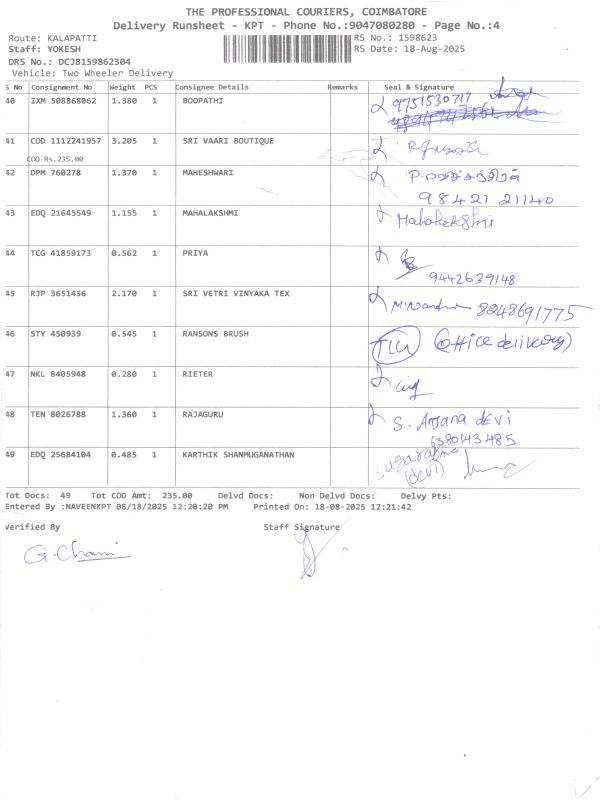 THE PROFESSIONAL COURIERS, COIMBATORE
Delivery Runsheet - KPT - Phone No.:9047080280 - Page No.:4
Route: KALAPATTI RS No.: 1598623
Staff: YOKESH RS Date: 18-Aug-2025
DRS No.: DCJB159862304
Vehicle: Two Wheeler Delivery
S No Consignment No Weight PCS Consignee Details Remarks Seal & Signature
40 IXM 508868062 1.380 1 BOOPATHI 9751530717
41 COD 1112241957 3.205 1 SRI VAARI BOUTIQUE
COD Rs.235.00
42 DPM 760278 1.370 1 MAHESHWARI
98421 21140
43 EDQ 21645549 1.155 1 MAHALAKSHMI Mahalakshmi
44 TCG 41859173 0.562 1 PRIYA
9442639148
45 RJP 3651456 2.170 1 SRI VETRI VINYAKA TEX 8248691775
46 STY 450939 0.545 1 RANSONS BRUSH (office delivery)
47 NKL 8405948 0.280 1 RIETER
48 TEN 8026788 1.360 1 RAJAGURU S. Anjana devi
638043485
49 EDQ 25684104 0.485 1 KARTHIK SHANMUGANATHAN
(devi)
Tot Docs: 49 Tot COD Amt: 235.00 Delvd Docs: Non Delvd Docs: Delvy Pts:
Entered By :NAVEENKPT 08/18/2025 12:20:20 PM Printed On: 18-08-2025 12:21:42
Verified By Staff Signature
G. Chami